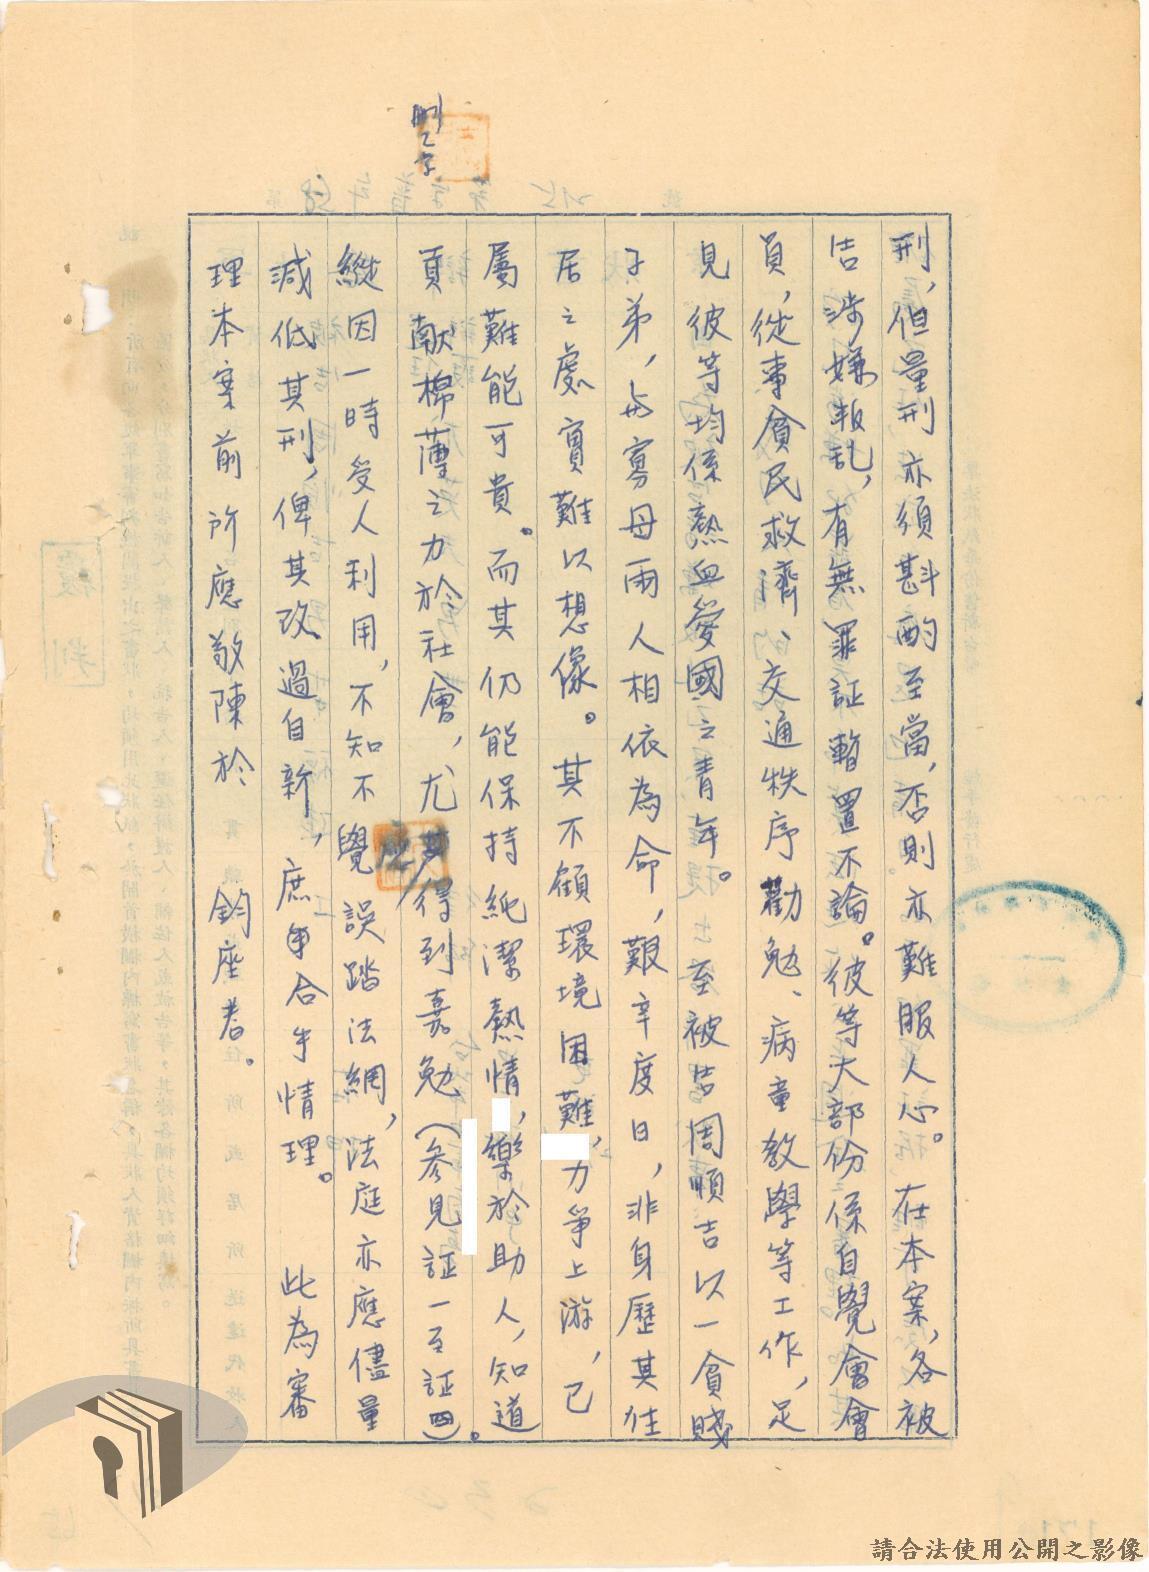 刪乙字
刑，但量刑亦須斟酌至當，否則亦難服人心。在本案，各被
告涉嫌叛乱，有無罪証暫置不論。彼等大部份係自覺會會
員，從事貧民救濟、交通秩序勸勉、病童教學等工作，足
見彼等均係熱血愛國之青年。至被告周順吉以一貧賤
子弟，與寡母兩人相依為命，艱辛度日，非身歷其住
居之處實難以想像。其不顧環境困難，力爭上游，已
屬難能可貴。而其仍能保持純潔熱情，樂於助人，知道
貢献棉薄之力於社會，尤應得到嘉勉（參見証一至証四）。
縱因一時受人利用，不知不覺誤踏法網，法庭亦應儘量
減低其刑，俾其改過自新，庶乎合乎情理。 此為審
理本案前所應敬陳於 鈞座者。
請合法使用公開之影像